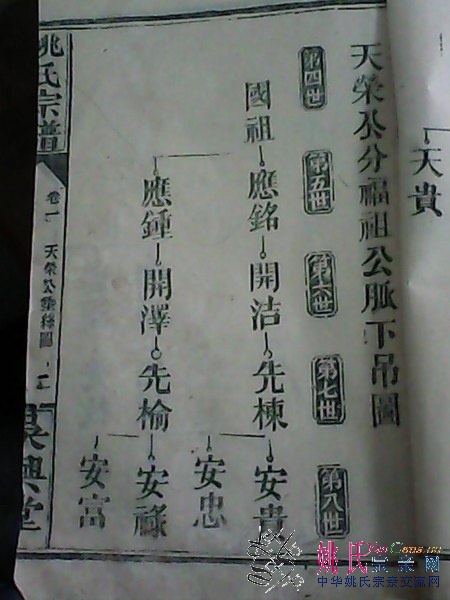 天貴
天榮公分福祖公脈下吊圖
第四世
第五世
第六世
第七世
第八世
國祖
應銘
開洁
先棟
安貴
安忠
應鍾
開澤
先榆
安祿
安富
姚氏宗譜
卷一
天榮公垂絲圖
二
吳興堂
姚氏宗亲网
中华姚氏宗亲交流网